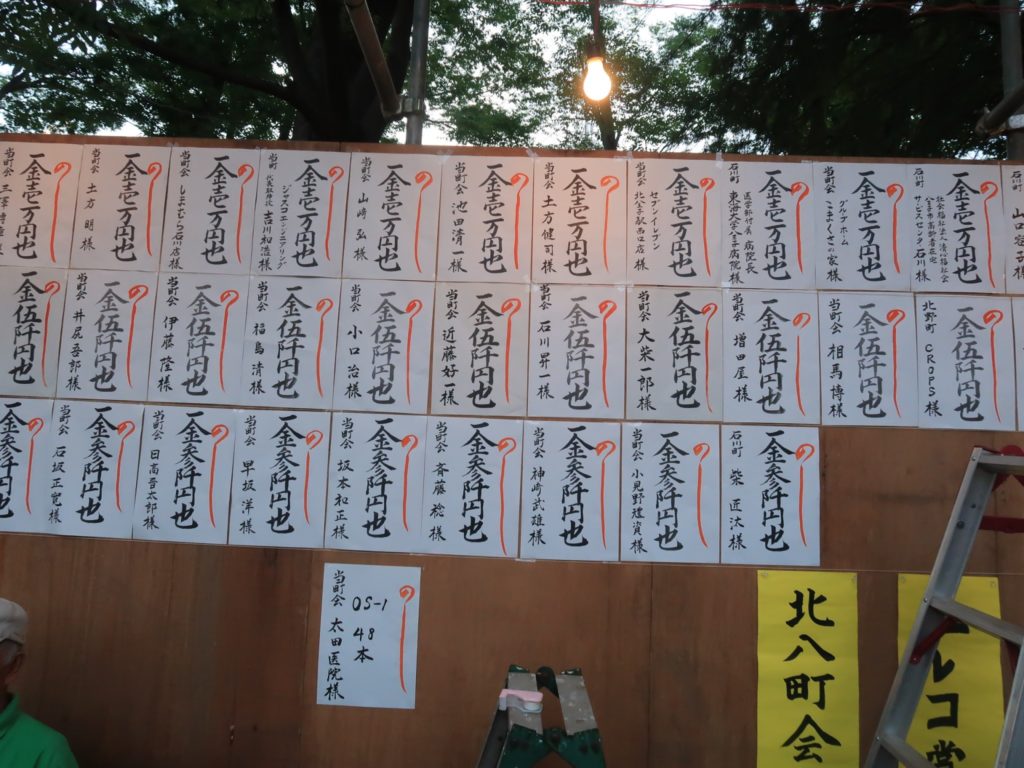 一金壱万円也
当町会 土方明様
一金壱万円也
当町会 しまむら石川店様
一金壱万円也
当町 ジャスコエンジニアリング
代表取締役 吉川和満様
一金壱万円也
当町会 山崎弘様
一金壱万円也
当町会 池田清一様
一金壱万円也
当町会 土方健司様
一金壱万円也
当町会 セブンイレブン
北八王子駅西口店様
一金壱万円也
石川町 医学部付属病院長
東海大学八王子病院様
一金壱万円也
当町会 グループホーム
こまくさの家様
一金壱万円也
石川町
サービスセンター石川様
一金壱万円也
一金伍阡円也
当町会 井尻吾郎様
一金伍阡円也
当町会 伊藤隆様
一金伍阡円也
当町会 福島清様
一金伍阡円也
当町会 小口治様
一金伍阡円也
当町会 近藤好一様
一金伍阡円也
当町会 石川昇一様
一金伍阡円也
当町会 大柴一郎様
一金伍阡円也
当町会 増田屋様
一金伍阡円也
当町会 相馬博様
一金伍阡円也
北野町 CROPS様
一金伍阡円也
一金参阡円也
当町会 石坂正寛様
一金参阡円也
当町会 日高晋太郎様
一金参阡円也
当町会 早坂洋様
一金参阡円也
当町会 坂本和正様
一金参阡円也
当町会 斉藤稔様
一金参阡円也
当町会 神崎武雄様
一金参阡円也
当町会 小見野建資様
一金参阡円也
石川町 柴匠汰様
一金参阡円也
OS-1 48本
当町会 太田医院様
北八町会